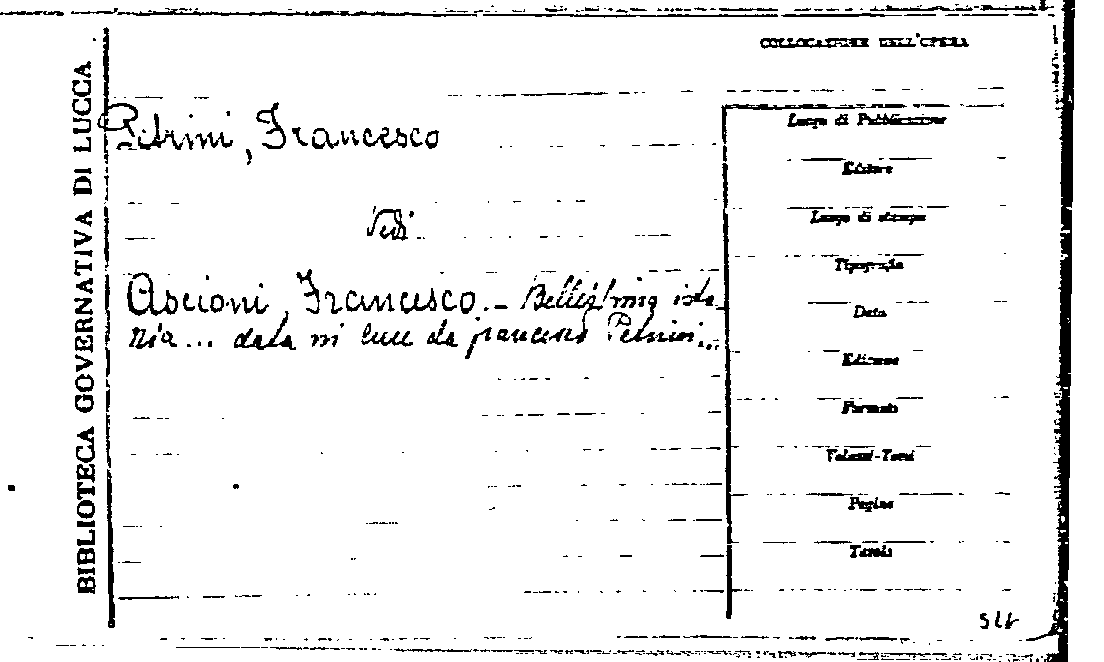 BIBLIOTECA GOVERNATIVA DI LUCCA
COLLOCAZIONE DELL'OPERA
Petrini, Francesco
Vedi
Ascioni, Francesco. – Bellissima isto
ria... data in luce da francesco Petrini...
Luogo di Pubblicazione
Editore
Luogo di stampa
Tipografia
Data
Edizione
Formato
Volumi-Tomi
Pagine
Tavole